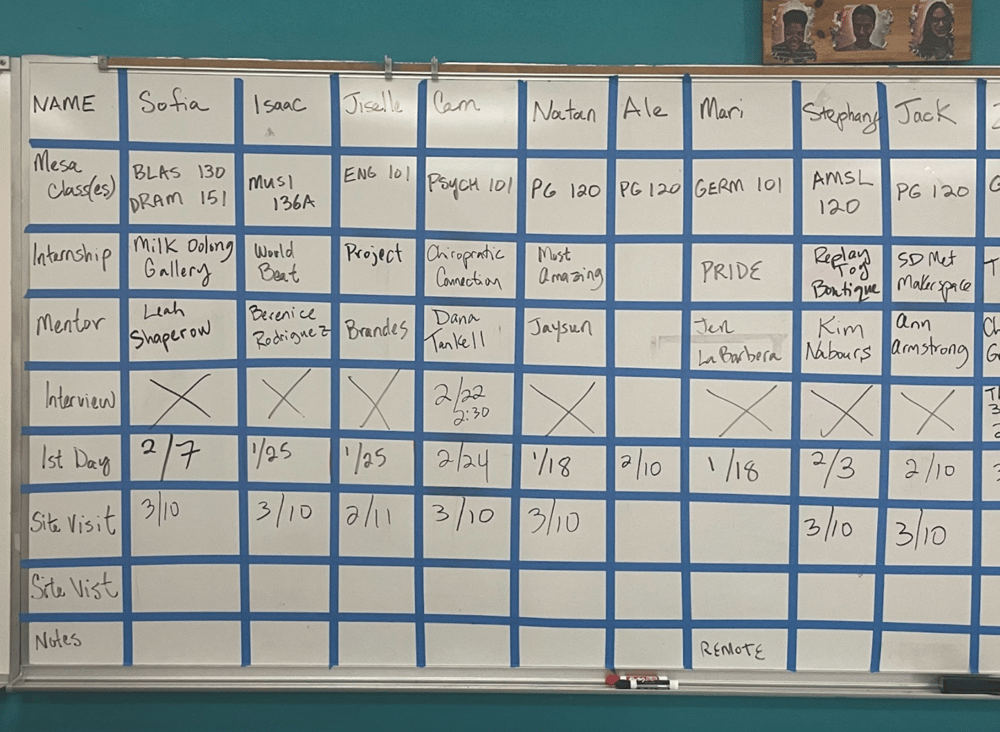 NAME Sofia Isaac Jiselle Cam Natan Ale Mari Stephany Jack
Mesa BLAS 130 MUSI ENG 101 PSYCH 101 PG 120 PG 120 GERM 101 AMSL PG 120
Class(es) DRAM 151 136A 120
Internship Milk Oolong World Project Chiropratic Most PRIDE Replay SD Met
Gallery Beat Connection Amazing Toy Makerspace
Boutique
Mentor Leah Berenice Brandes Dana Jaysun Jen Kim Ann
Shaperow Rodriguez Tankell La Barbera Nabours Armstrong
Interview X X X 2/22 X X X X
2:30
1st Day 2/7 1/25 1/25 2/24 1/18 2/10 1/18 2/3 2/10
Site Visit 3/10 3/10 2/11 3/10 3/10 3/10 3/10
Site Vist
Notes REMOTE